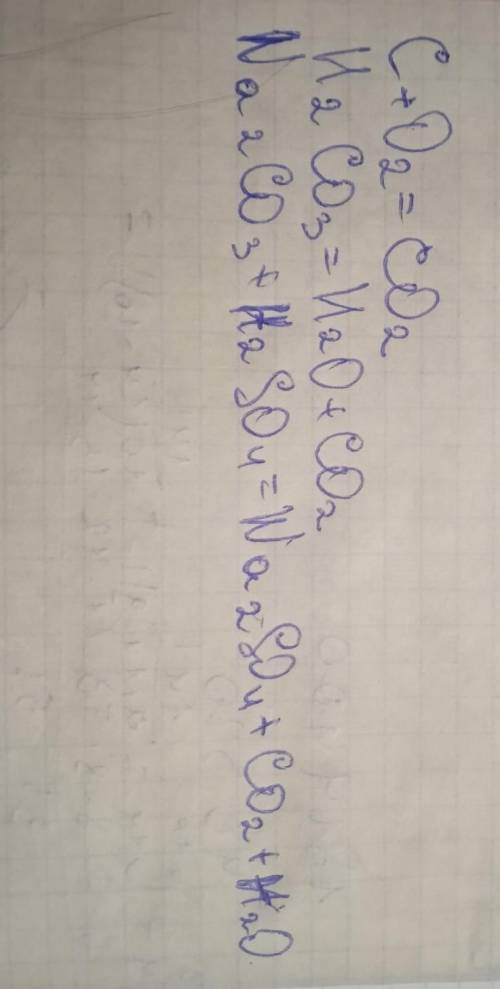 C+O₂=CO₂
H₂CO₃=H₂O+CO₂
Na₂CO₃+H₂SO₄=Na₂SO₄+CO₂+H₂O